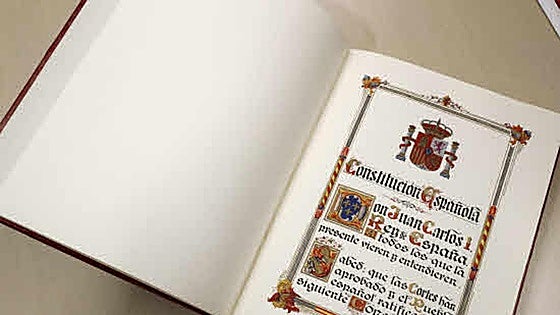 Constitución Española
Don Juan Carlos I,
Rey de España
A todos los que la
presente vieren y entendieren,
Sabed: que las Cortes han
aprobado y el Pueblo
español ratificado
siguiente